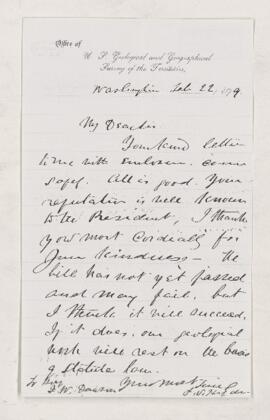 Office of
U. S. Geological and Geographical
Survey of the Territories,
Washington Feb. 22, 1879
My Dear Sir
Your kind letter
to me with enclosure came
safely. All is good. Your
reputation is well known
to the President, I thank
you most cordially for
your kindness – The
bill has not yet passed
and may fail, but
I think it will succeed.
If it does, our geological
work will rest on the basis
of Statute law.
Yours most
J. W. Dawson